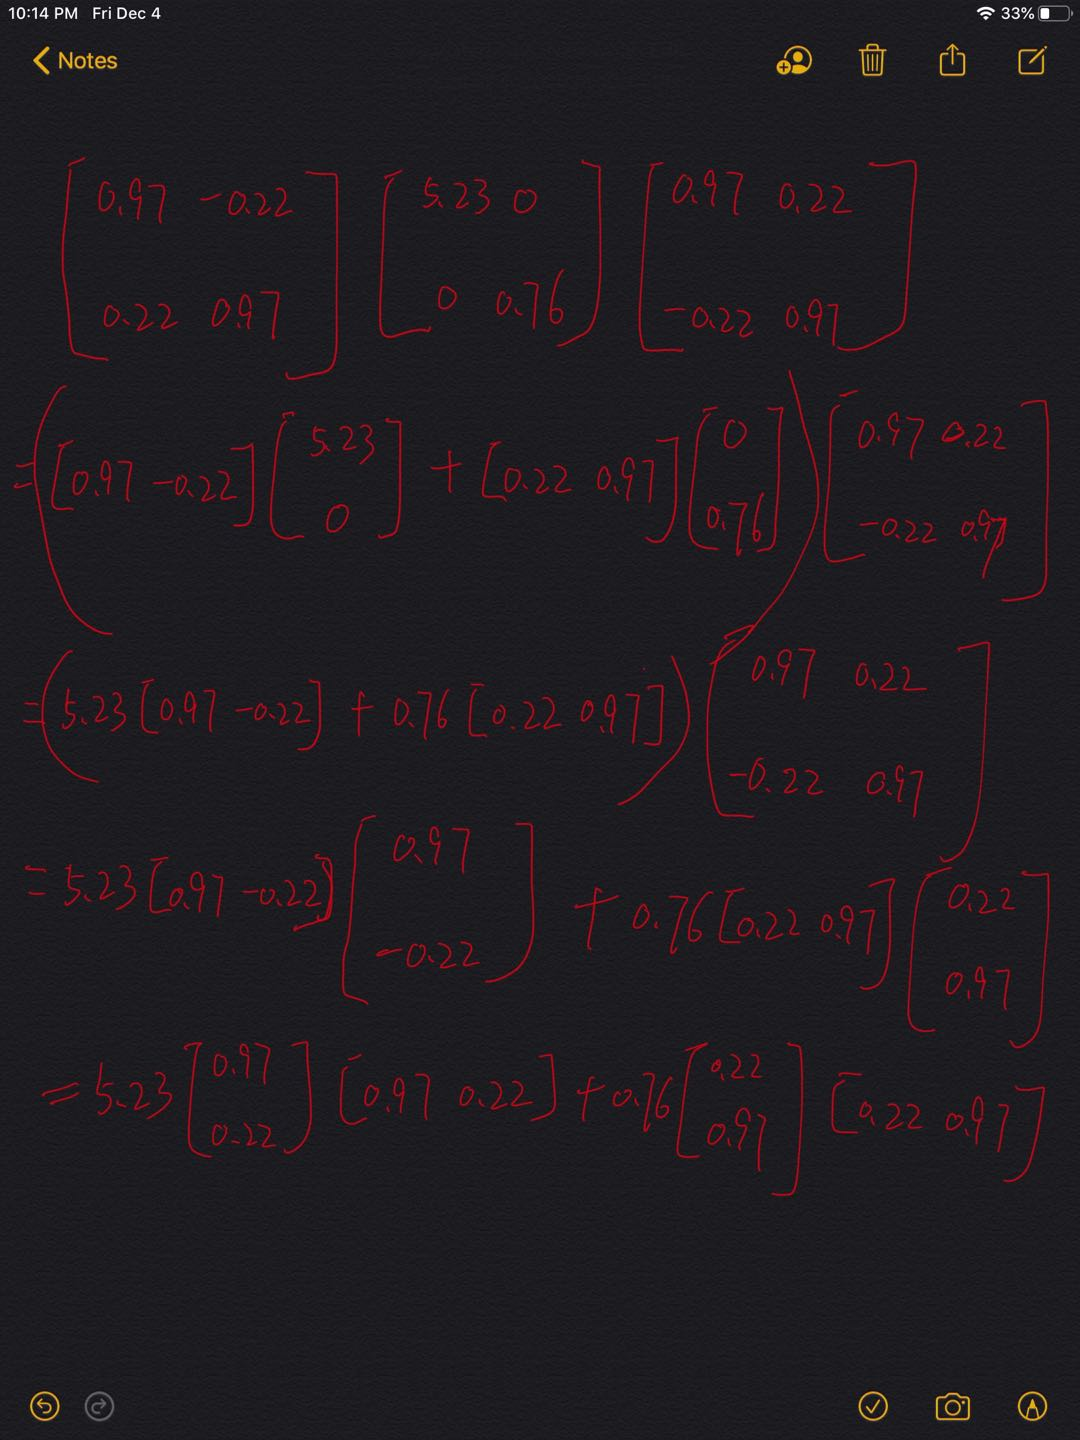 10:14 PM Fri Dec 4 33%
Notes
[0.97 -0.22 [5.23 0 [0.97 0.22
0.22 0.97] 0 0.76] -0.22 0.97]
=([0.97 -0.22] [5.23 0] + [0.22 0.97] [0 0.76]) [0.97 0.22 -0.22 0.97]
=(5.23 [0.97 -0.22] + 0.76 [0.22 0.97]) [0.97 0.22 -0.22 0.97]
= 5.23 [0.97 -0.22] [0.97 -0.22] + 0.76 [0.22 0.97] [0.22 0.97]
= 5.23 [0.97 0.22] [0.97 0.22] + 0.76 [0.22 0.97] [0.22 0.97]